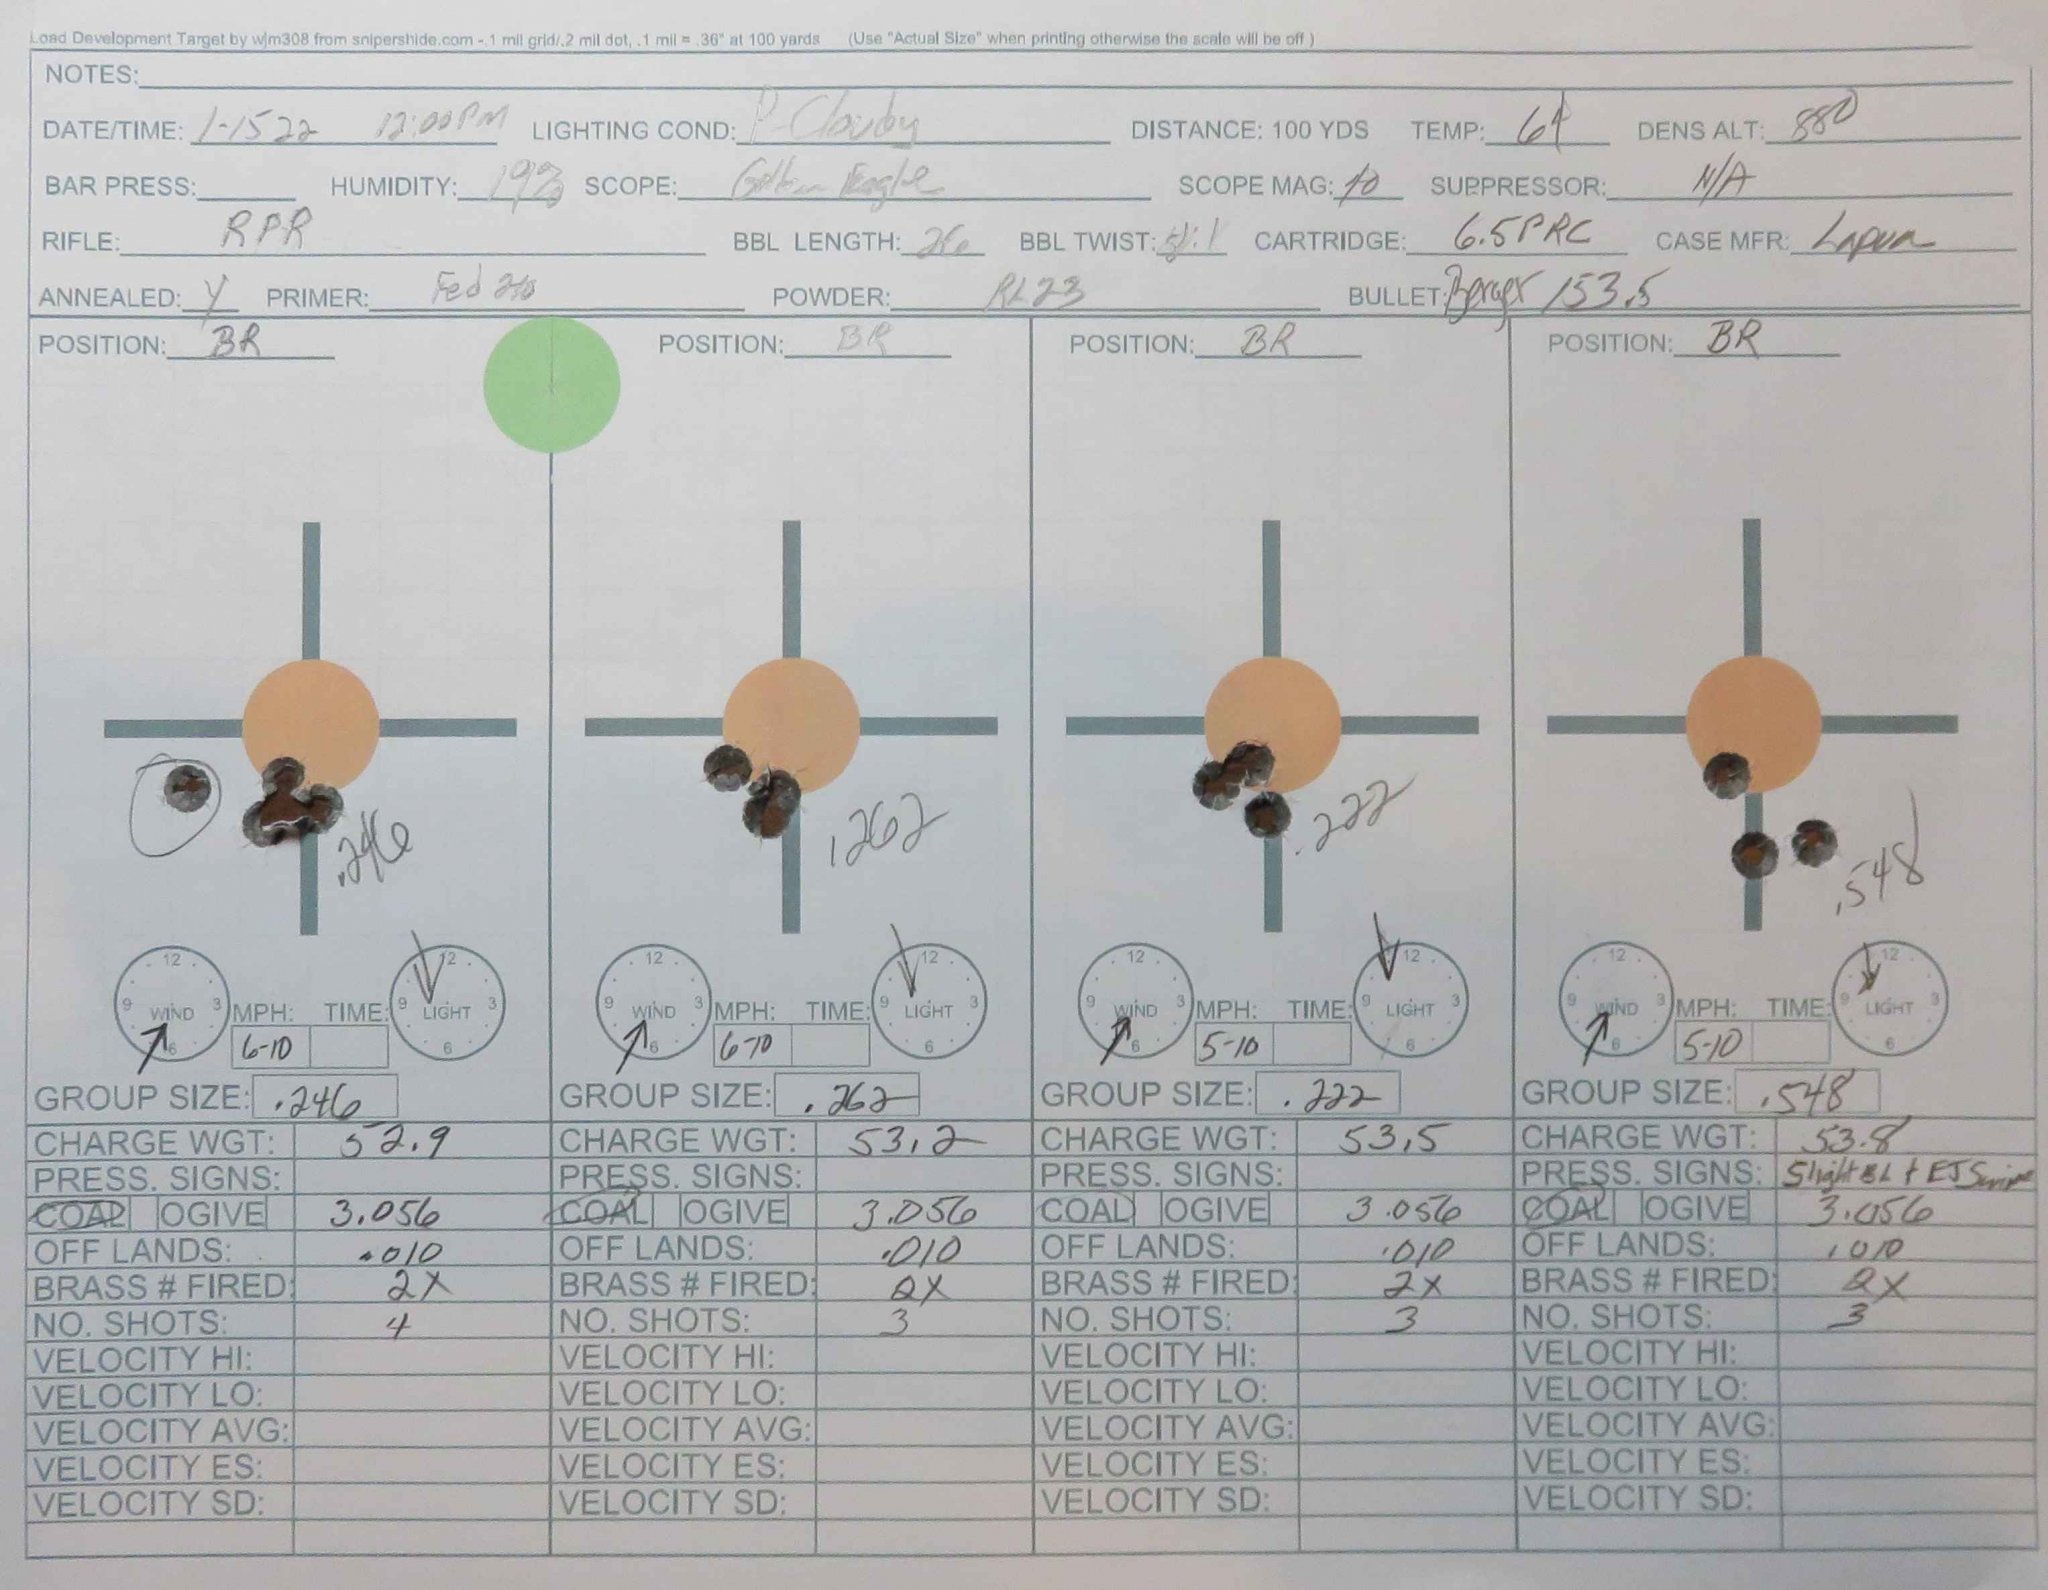 Load Development Target by wjm308 from snipershide.com - .1 mil grid/.2 mil dot, .1 mil = .36" at 100 yards (Use "Actual Size" when printing otherwise the scale will be off )
NOTES:
DATE/TIME: 1-15 22 12:00PM LIGHTING COND: P-Cloudy DISTANCE: 100 YDS TEMP: 61 DENS ALT: 880
BAR PRESS: HUMIDITY: 19% SCOPE: Golden Eagle SCOPE MAG: 40 SUPPRESSOR: N/A
RIFLE: RPR BBL LENGTH: 26 BBL TWIST: CARTRIDGE: 6.5PRC CASE MFR: Lapua
ANNEALED: Y PRIMER: Fed 210 POWDER: RL23 BULLET: Berger 153.5
POSITION: BR POSITION: BR POSITION: BR POSITION: BR
.246 .262 .222 .548
12 12 12 12 12 12 12 12
9 WIND 3 MPH: TIME: 9 LIGHT 3 9 WIND 3 MPH: TIME: 9 LIGHT 3 9 WIND 3 MPH: TIME: 9 LIGHT 3 9 WIND 3 MPH: TIME: 9 LIGHT 3
6 6-10 6 6 6-10 6 6 5-10 6 6 5-10 6
GROUP SIZE: .246 GROUP SIZE: .262 GROUP SIZE: .222 GROUP SIZE: .548
CHARGE WGT: 52.9 CHARGE WGT: 53.2 CHARGE WGT: 53.5 CHARGE WGT: 53.8
PRESS. SIGNS: PRESS. SIGNS: PRESS. SIGNS: PRESS. SIGNS: Slight BL + EJ
COAL OGIVE 3.056 COAL OGIVE 3.056 COAL OGIVE 3.056 COAL OGIVE 3.056
OFF LANDS: .010 OFF LANDS: .010 OFF LANDS: .010 OFF LANDS: .010
BRASS # FIRED: 2X BRASS # FIRED: 2X BRASS # FIRED: 2X BRASS # FIRED: 2X
NO. SHOTS: 4 NO. SHOTS: 3 NO. SHOTS: 3 NO. SHOTS: 3
VELOCITY HI: VELOCITY HI: VELOCITY HI: VELOCITY HI:
VELOCITY LO: VELOCITY LO: VELOCITY LO: VELOCITY LO:
VELOCITY AVG: VELOCITY AVG: VELOCITY AVG: VELOCITY AVG:
VELOCITY ES: VELOCITY ES: VELOCITY ES: VELOCITY ES:
VELOCITY SD: VELOCITY SD: VELOCITY SD: VELOCITY SD: